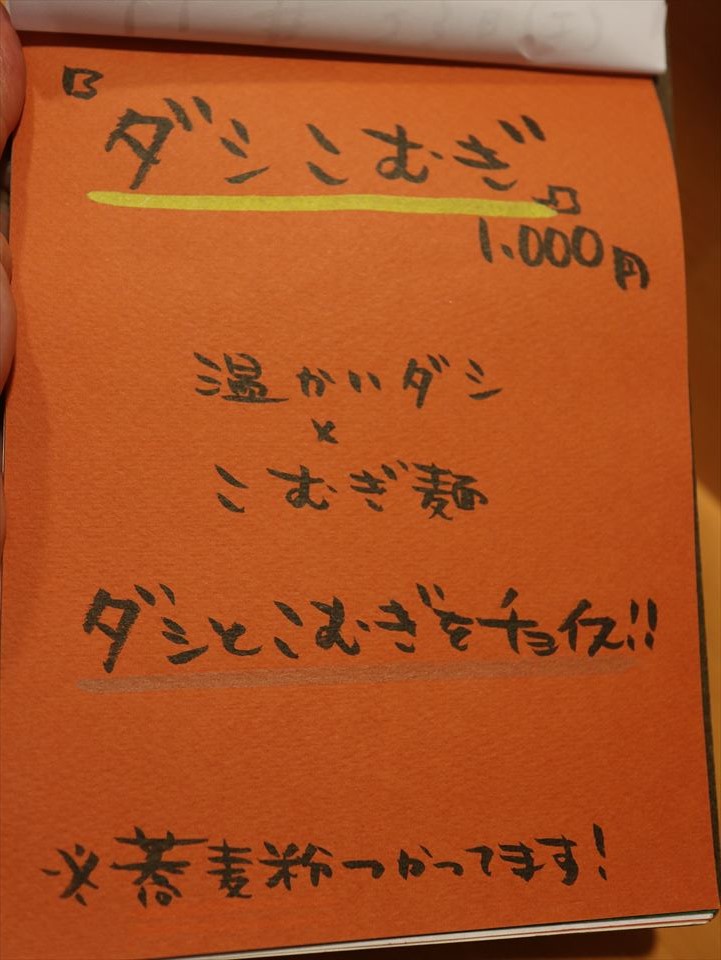 『ダシこむぎ』
1.000円
温かいダシ
×
こむぎ麺
ダシとこむぎをチョイス!!
※蕎麦粉つかってます!